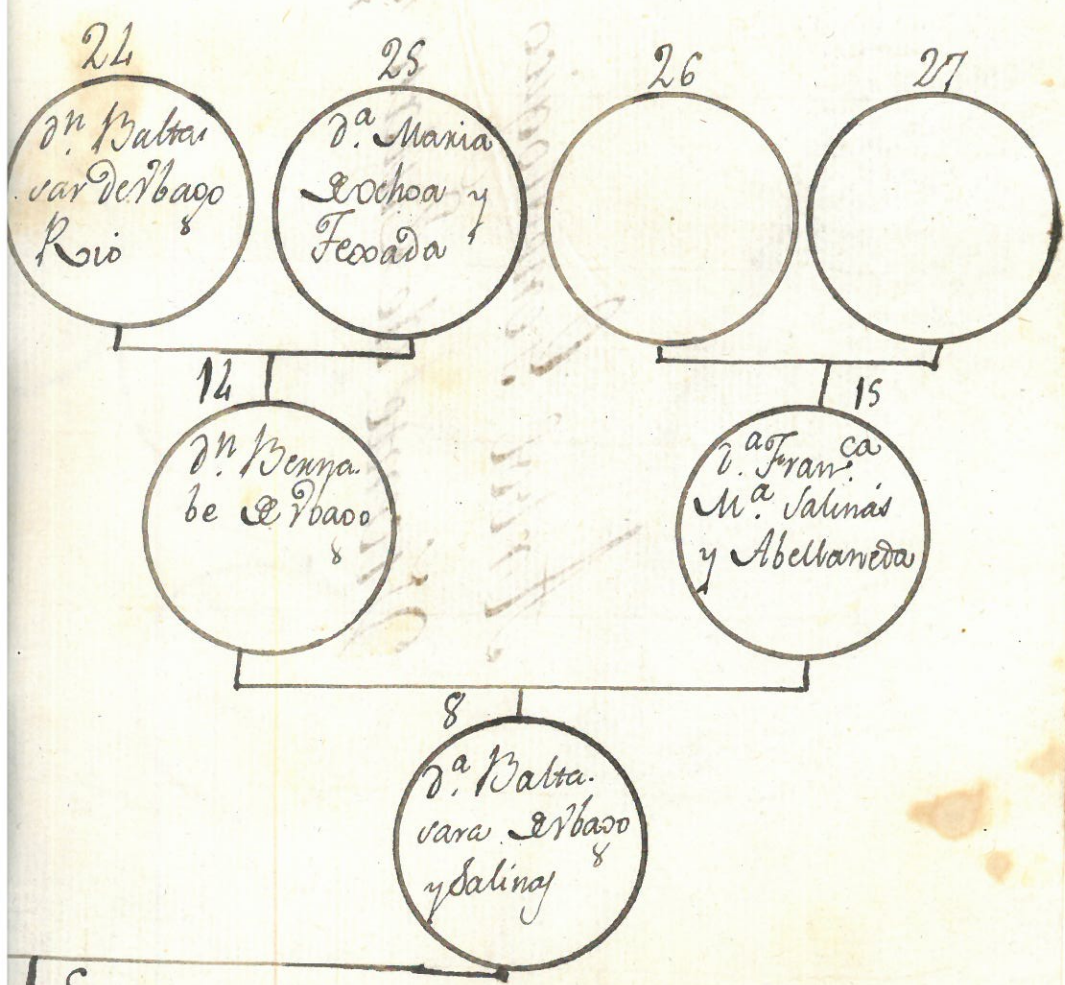 24
25
26
27
dⁿ. Balta-
sar de Vbago
8
Rio
dª. Maria
de Ochoa y
Texada
14
15
dⁿ. Berna-
be de Vbago
8
dª. Franᶜª.
Mª. Salinas
y Abellaneda
8
dª. Balta-
sara de Vbago
8
y Salinas